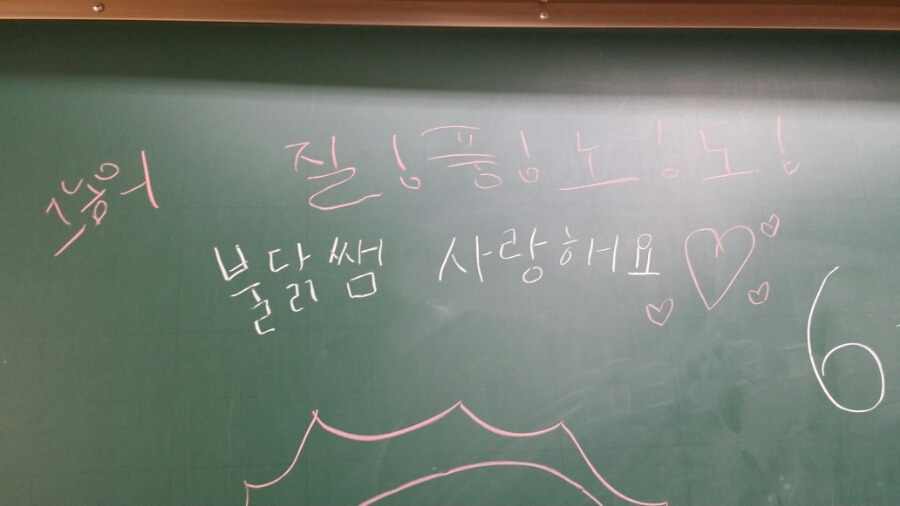 질!풍!노!도!
불닭쌤 사랑해요
6